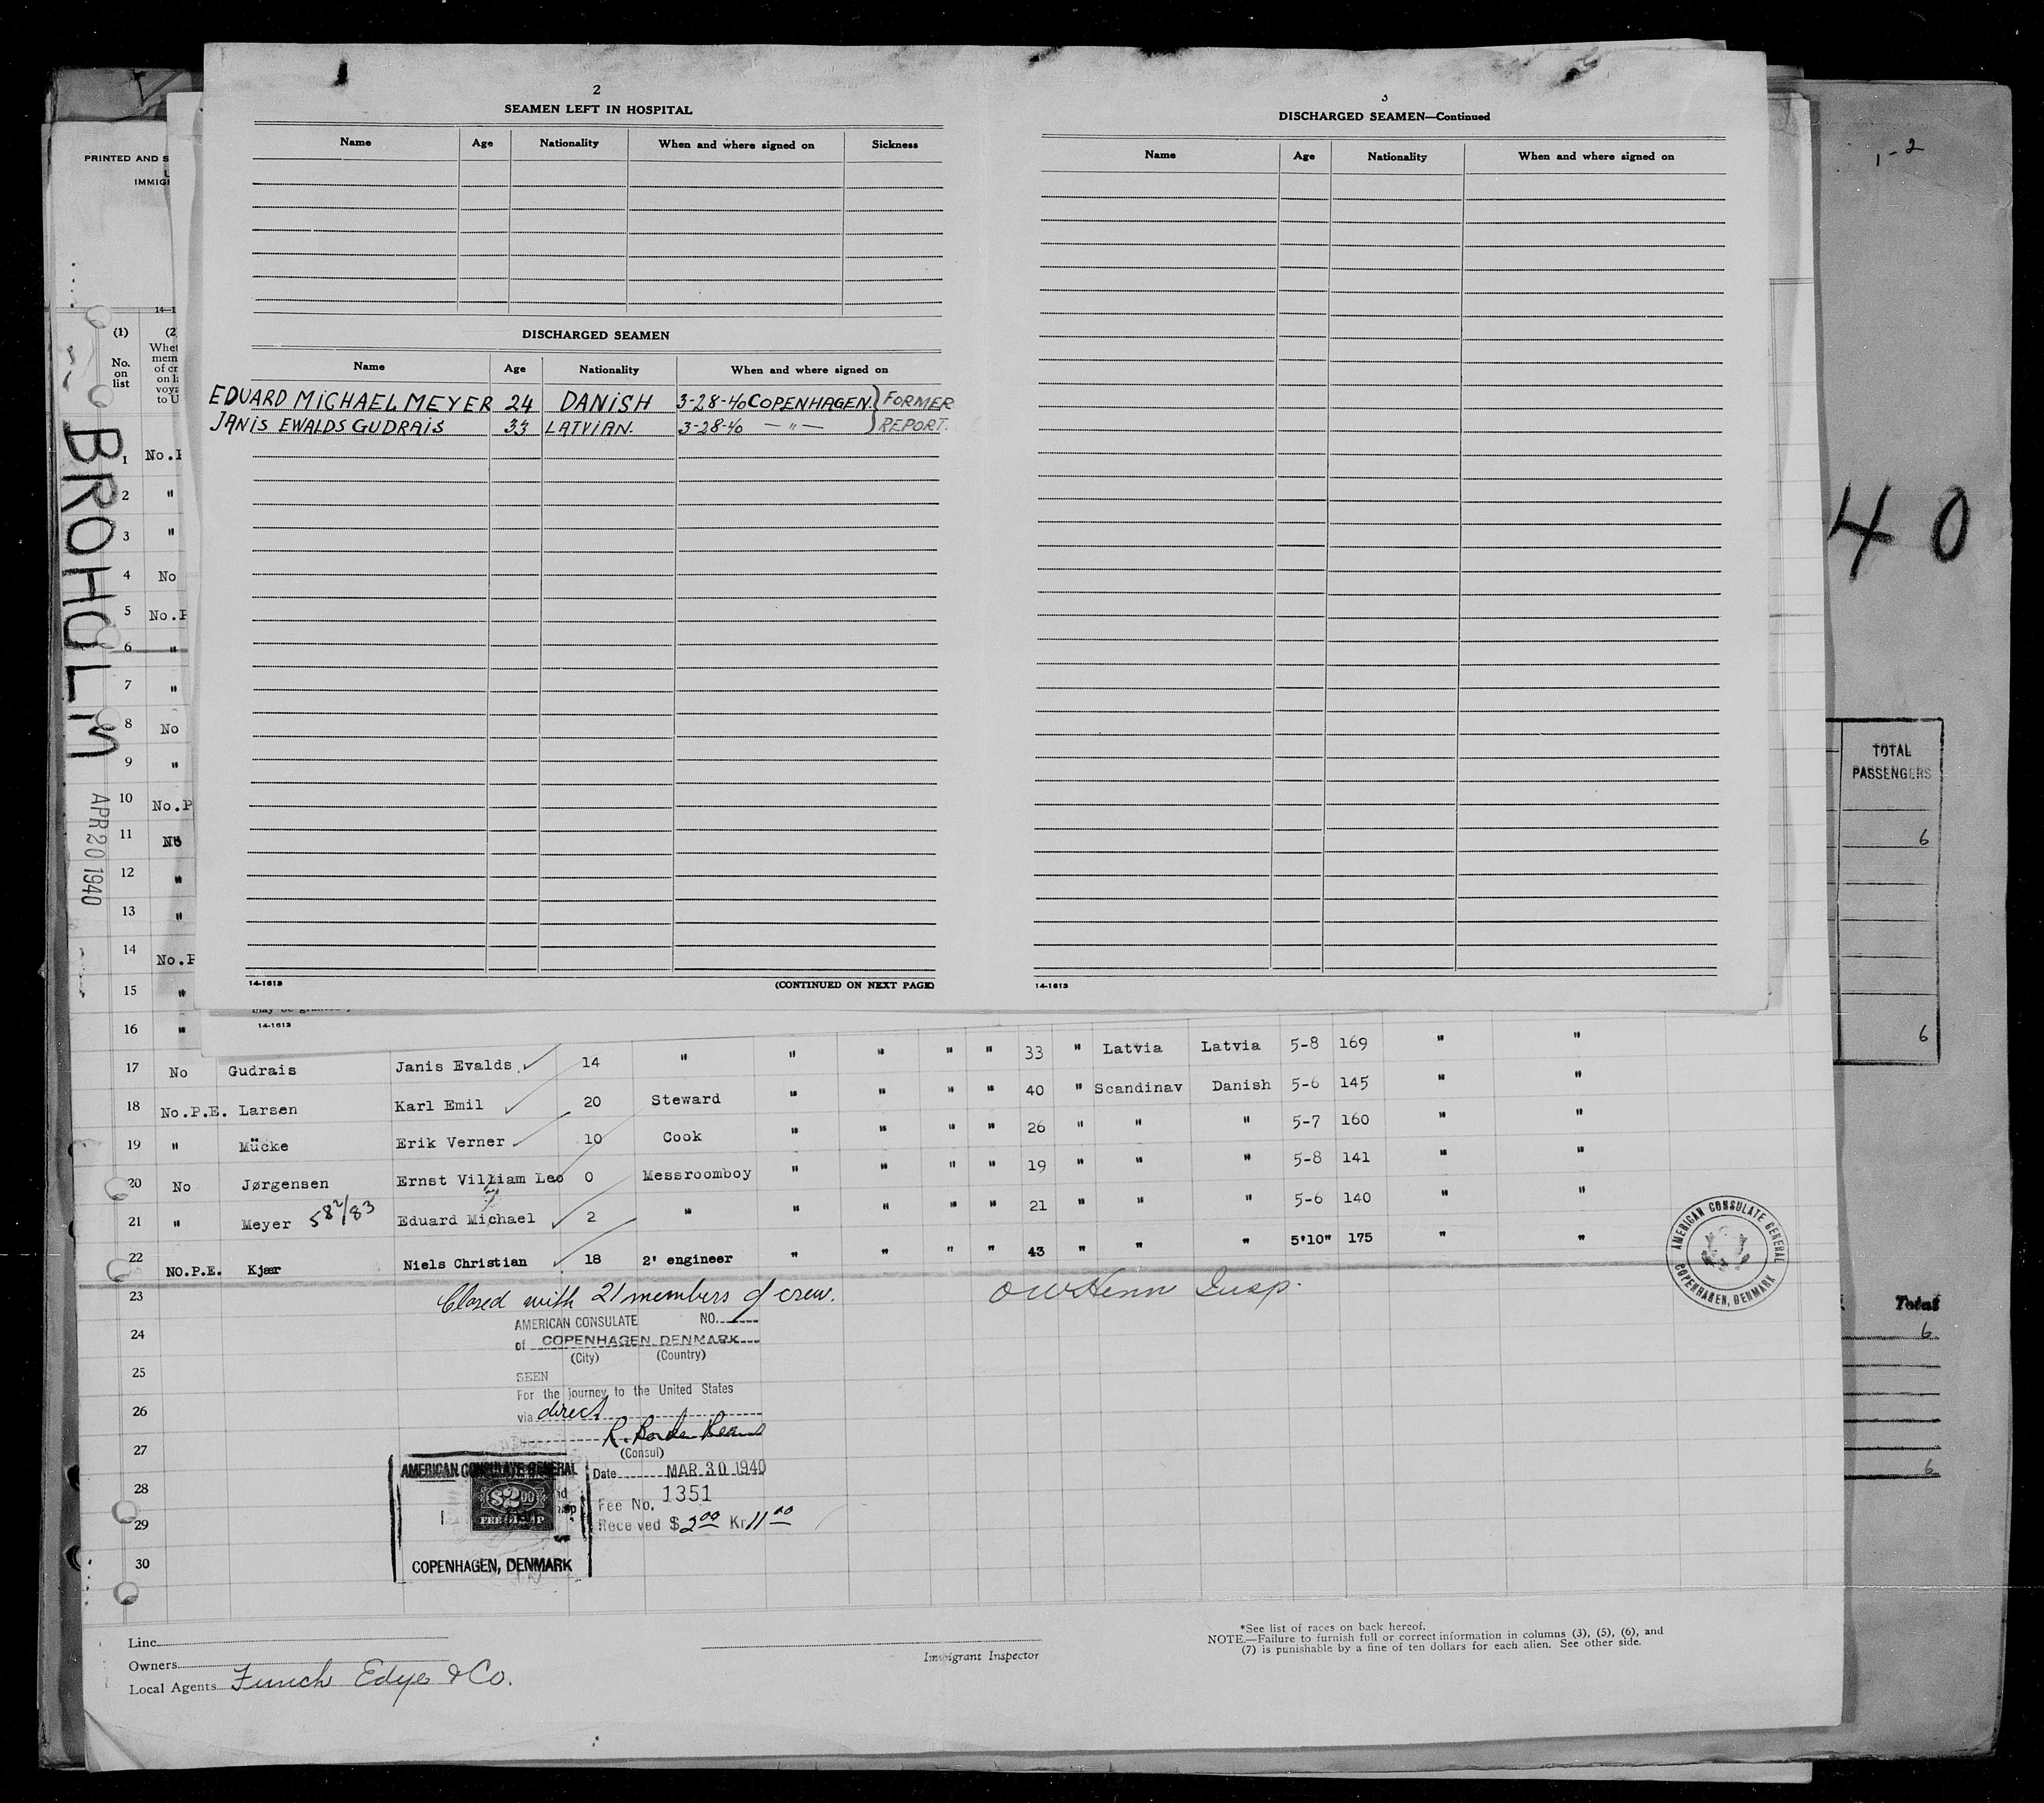 2
SEAMEN LEFT IN HOSPITAL
Name Age Nationality When and where signed on Sickness
DISCHARGED SEAMEN
Name Age Nationality When and where signed on
EDUARD MICHAEL MEYER 24 DANISH 3-28-40 COPENHAGEN. } FORMER
JANIS EWALDS GUDRAIS 33 LATVIAN. 3-28-40 — " — } REPORT.
14-1613 (CONTINUED ON NEXT PAGE)
3
DISCHARGED SEAMEN—Continued
Name Age Nationality When and where signed on
14-1613
1-2
40
TOTAL
PASSENGERS
6
6
Total
6
6
PRINTED AND S
IMMIGI
14—1
(1) (2
No. on list
Whet
mem
of cr
on l
voya
to U
BROHOLM
APR 20 1940
1 No.P
2 "
3 "
4 No
5 No.P
6 "
7 "
8 No
9 "
10 No.P
11 No
12 "
13 "
14 No.P
15 "
16 "
14-1613
17 No Gudrais Janis Evalds 14 " " " " " 33 " Latvia Latvia 5-8 169 " "
18 No.P.E. Larsen Karl Emil 20 Steward " " " " 40 " Scandinav Danish 5-6 145 " "
19 " Mücke Erik Verner 10 Cook " " " " 26 " " " 5-7 160 " "
20 No Jørgensen Ernst Villiam Leo 0 Messroomboy " " " " 19 " " " 5-8 141 " "
21 " Meyer 582/83 Eduard Michael 2 " " " " " 21 " " " 5-6 140 " "
22 NO.P.E. Kjær Niels Christian 18 2' engineer " " " " 43 " " " 5'10" 175 " "
23 Closed with 21 members of crew. OWHenn Insp.
24
25
26
27
28
29
30
AMERICAN CONSULATE NO.
of COPENHAGEN DENMARK
(City) (Country)
SEEN
For the journey to the United States
via direct
(Consul)
Date MAR 30 1940
Fee No. 1351
Received $2.00 Kr 11.00
AMERICAN CONSULATE GENERAL
$2.00
FEE STAMP
COPENHAGEN, DENMARK
AMERICAN CONSULATE GENERAL
COPENHAGEN, DENMARK
Line
Owners
Local Agents Funch Edye & Co.
Immigrant Inspector
*See list of races on back hereof.
NOTE.—Failure to furnish full or correct information in columns (3), (5), (6), and
(7) is punishable by a fine of ten dollars for each alien. See other side.